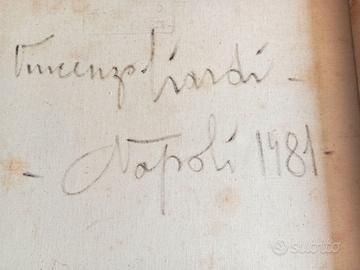 Vincenzo Irardi -
- Napoli 1981 -
subito